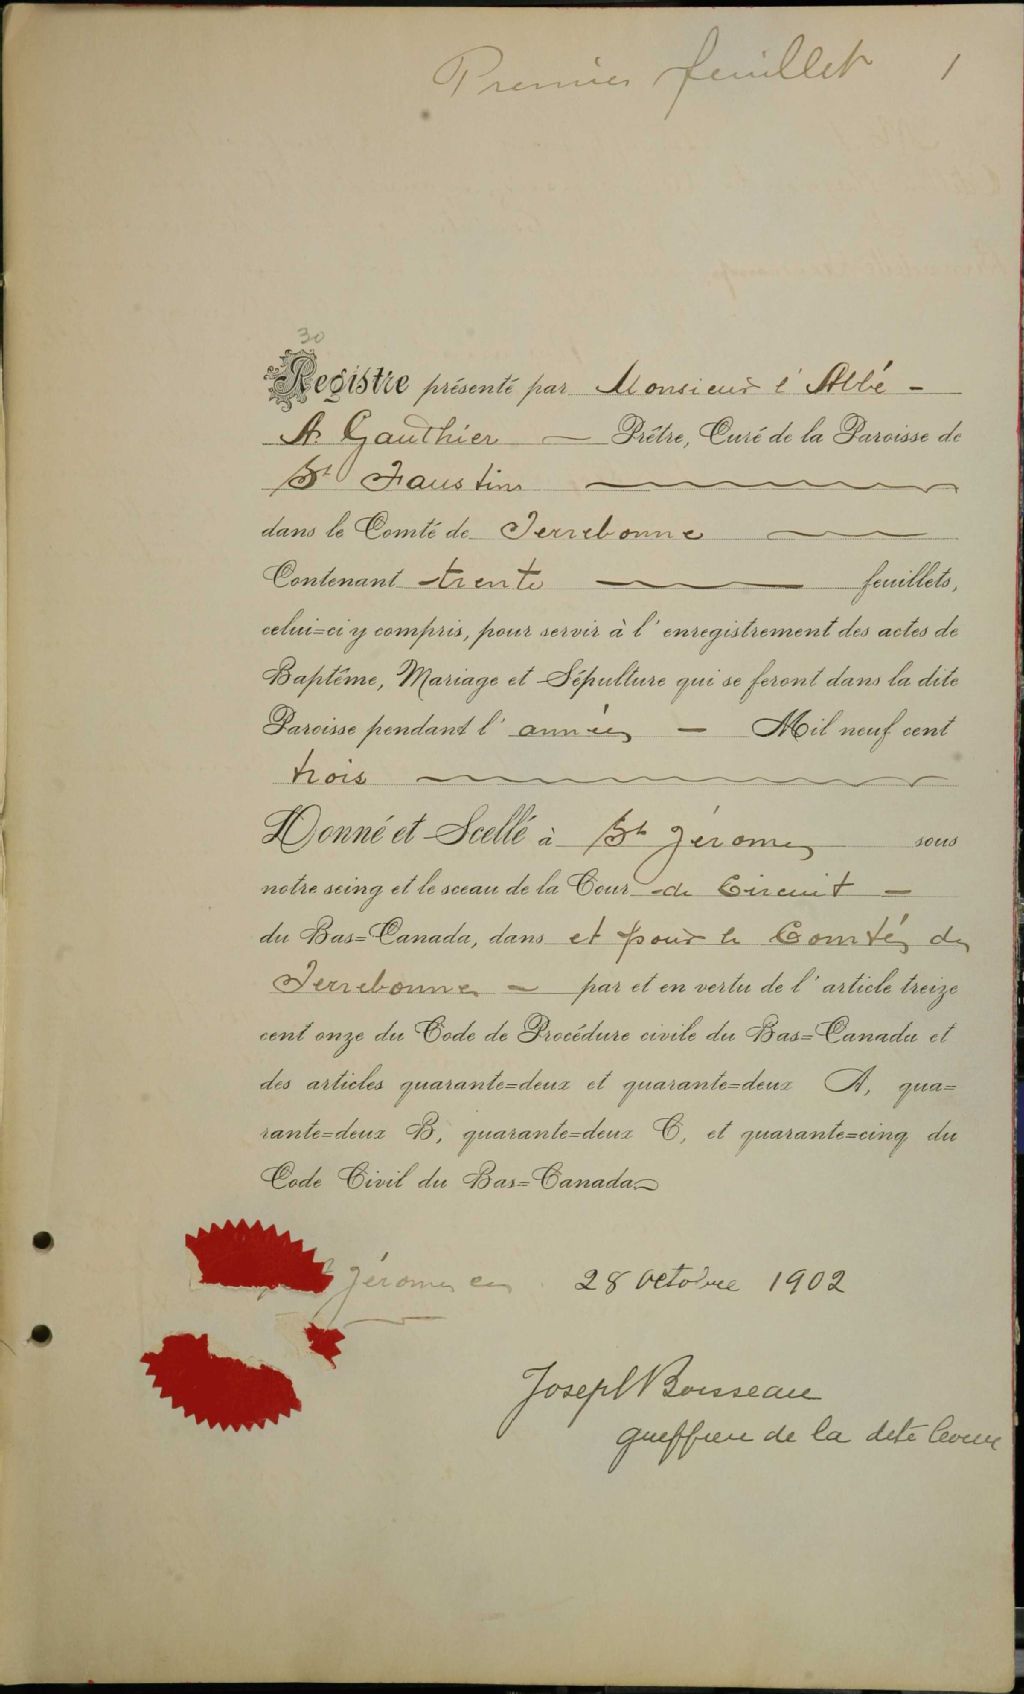 Premier feuillet 1
30
Registre présenté par Monsieur l'Abbé -
A. Gauthier — Prêtre, Curé de la Paroisse de
St Faustin
dans le Comté de Terrebonne
Contenant trente feuillets,
celui=ci y compris, pour servir à l'enregistrement des actes de
Baptême, Mariage et Sépulture qui se feront dans la dite
Paroisse pendant l'année — Mil neuf cent
trois
Donné et Scellé à St Jérome sous
notre seing et le sceau de la Cour de Circuit —
du Bas=Canada, dans et pour le Comté de
Terrebonne — par et en vertu de l'article treize
cent onze du Code de Procédure civile du Bas=Canada et
des articles quarante=deux et quarante=deux A, qua=
rante=deux B, quarante=deux C, et quarante=cinq du
Code Civil du Bas=Canada.
Jérome ce 28 octobre 1902
Joseph Boisseau
greffier de la dite Cour